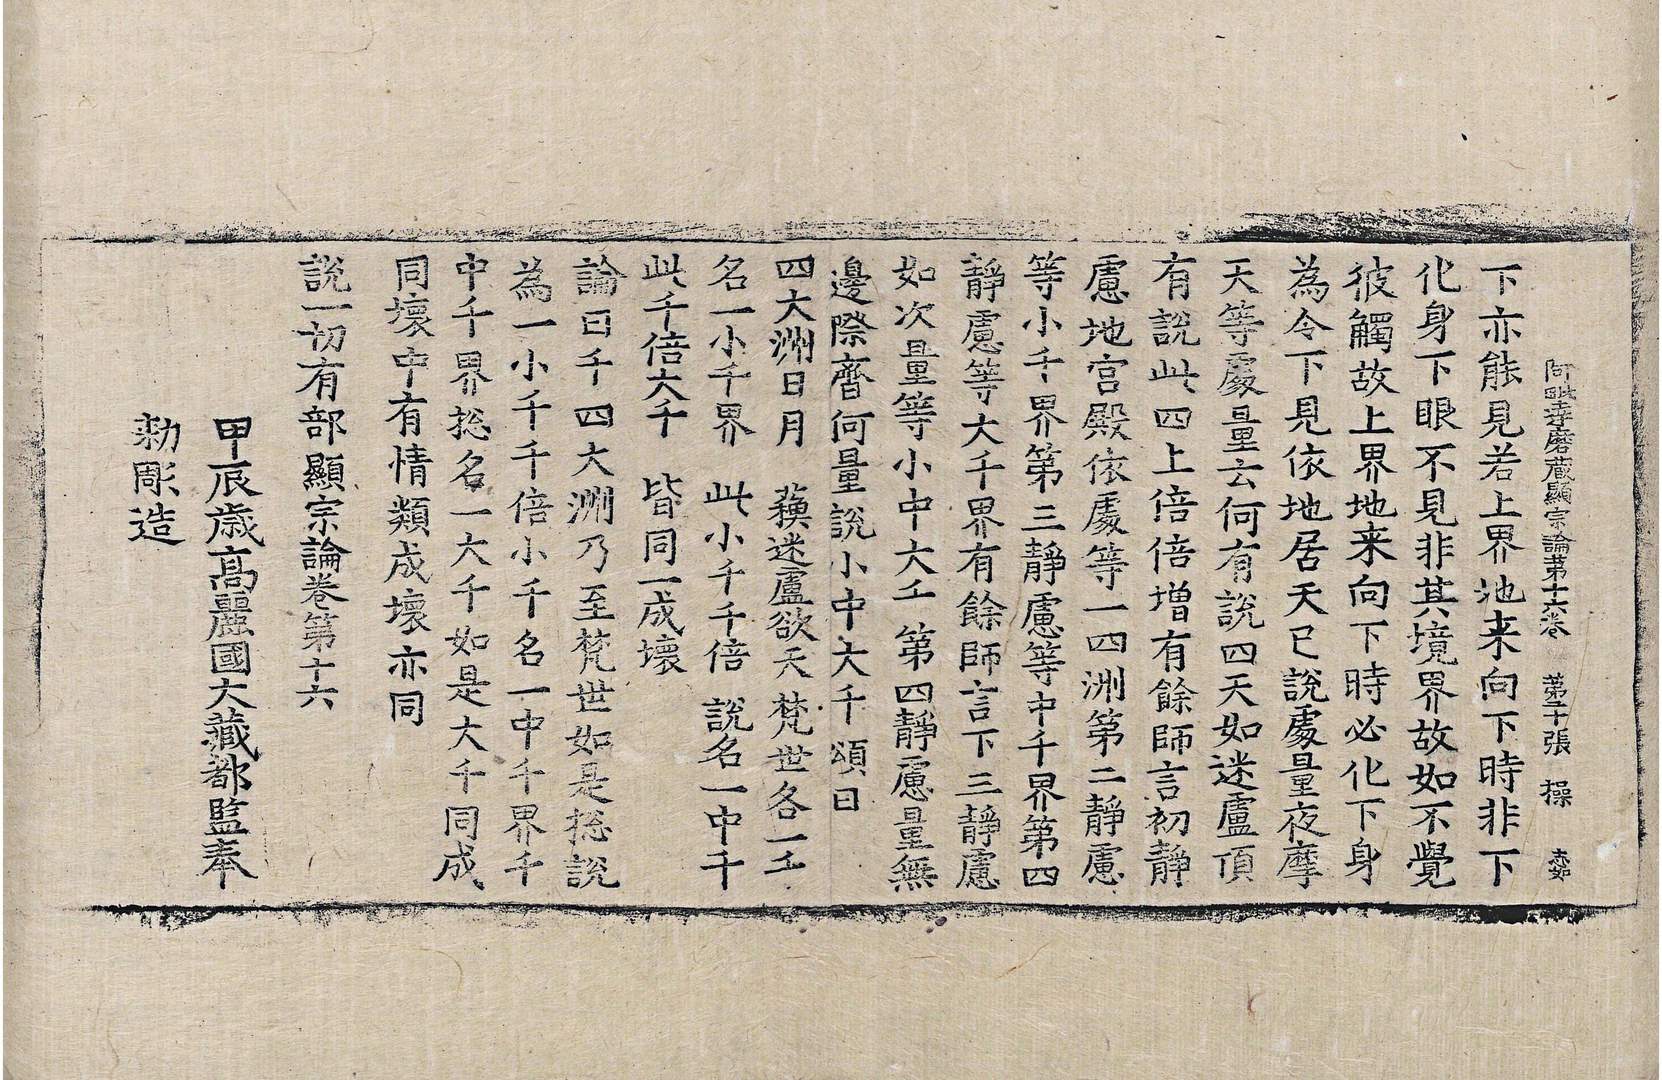 阿毗達磨藏顯宗論苐十六卷 苐二十張 操 志如
下亦能見若上界地来向下時非下
化身下眼不見非其境界故如不覺
彼觸故上界地来向下時必化下身
為令下見依地居天已說處量夜摩
天等處量云何有說四天如迷盧頂
有說此四上倍倍增有餘師言初靜
慮地宮殿依處等一四洲第二靜慮
等小千界第三靜慮等中千界第四
靜慮等大千界有餘師言下三靜慮
如次量等小中大千第四靜慮量無
邊際齊何量說小中大千頌曰
四大洲日月 蘇迷盧欲天梵世各一千
名一小千界 此小千千倍 說名一中千
此千倍大千 皆同一成壞
論曰千四大洲乃至梵世如是捴說
為一小千千倍小千名一中千界千
中千界捴名一大千如是大千同成
同壞中有情類成壞亦同
說一切有部顯宗論卷第十六
甲辰歲高麗國大藏都監奉
勑彫造